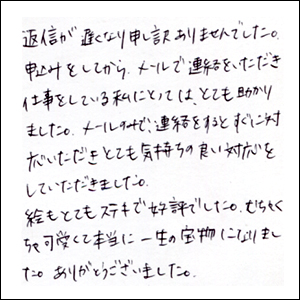 返信が遅くなり申し訳ありませんでした。
申込みをしてから、メールで連絡をいただき
仕事をしている私にとっては、とても助かり
ました。メールのみで、連絡をするとすぐに対
応いただきとても気持ちの良い対応を
していただきました。
絵もとてもステキで好評でした。むちゃく
ちゃ可愛くて本当に一生の宝物になりまし
た。ありがとうございました。